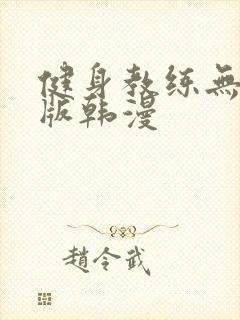 健身教练無
版韩漫
趙令武